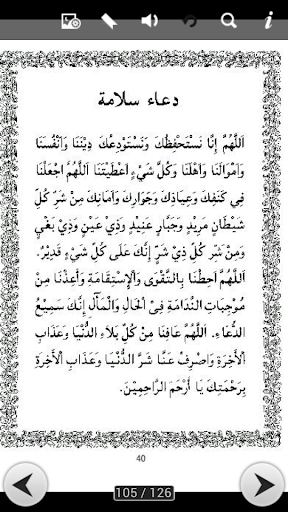 دعاء سلامة
اَللّٰهُمَّ إِنَّا نَسْتَحْفِظُكَ وَنَسْتَوْدِعُكَ دِيْنَنَا وَأَنْفُسَنَا
وَأَمْوَالَنَا وَأَهْلَنَا وَكُلَّ شَيْءٍ أَعْطَيْتَنَا اَللّٰهُمَّ اجْعَلْنَا
فِي كَنَفِكَ وَعِيَاذِكَ وَجِوَارِكَ وَأَمَانِكَ مِنْ شَرِّ كُلِّ
شَيْطَانٍ مَرِيْدٍ وَجَبَّارٍ عَنِيْدٍ وَذِيْ عَيْنٍ وَذِيْ بَغْيٍ
وَمِنْ شَرِّ كُلِّ ذِيْ شَرٍّ إِنَّكَ عَلَى كُلِّ شَيْءٍ قَدِيْرٌ.
اَللّٰهُمَّ احِطْنَا بِالتَّقْوَى وَالْإِسْتِقَامَةِ وَأَعِذْنَا مِنْ
مُوْجِبَاتِ النَّدَامَةِ فِيْ الْحَالِ وَالْمَآلِ إِنَّكَ سَمِيْعُ
الدُّعَاءِ. اَللّٰهُمَّ عَافِنَا مِنْ كُلِّ بَلَاءِ الدُّنْيَا وَعَذَابِ
الْأَخِرَةِ وَاصْرِفْ عَنَّا شَرَّ الدُّنْيَا وَعَذَابَ الْأَخِرَةِ
بِرَحْمَتِكَ يَا أَرْحَمَ الرَّاحِمِيْنَ.
40
105 / 126